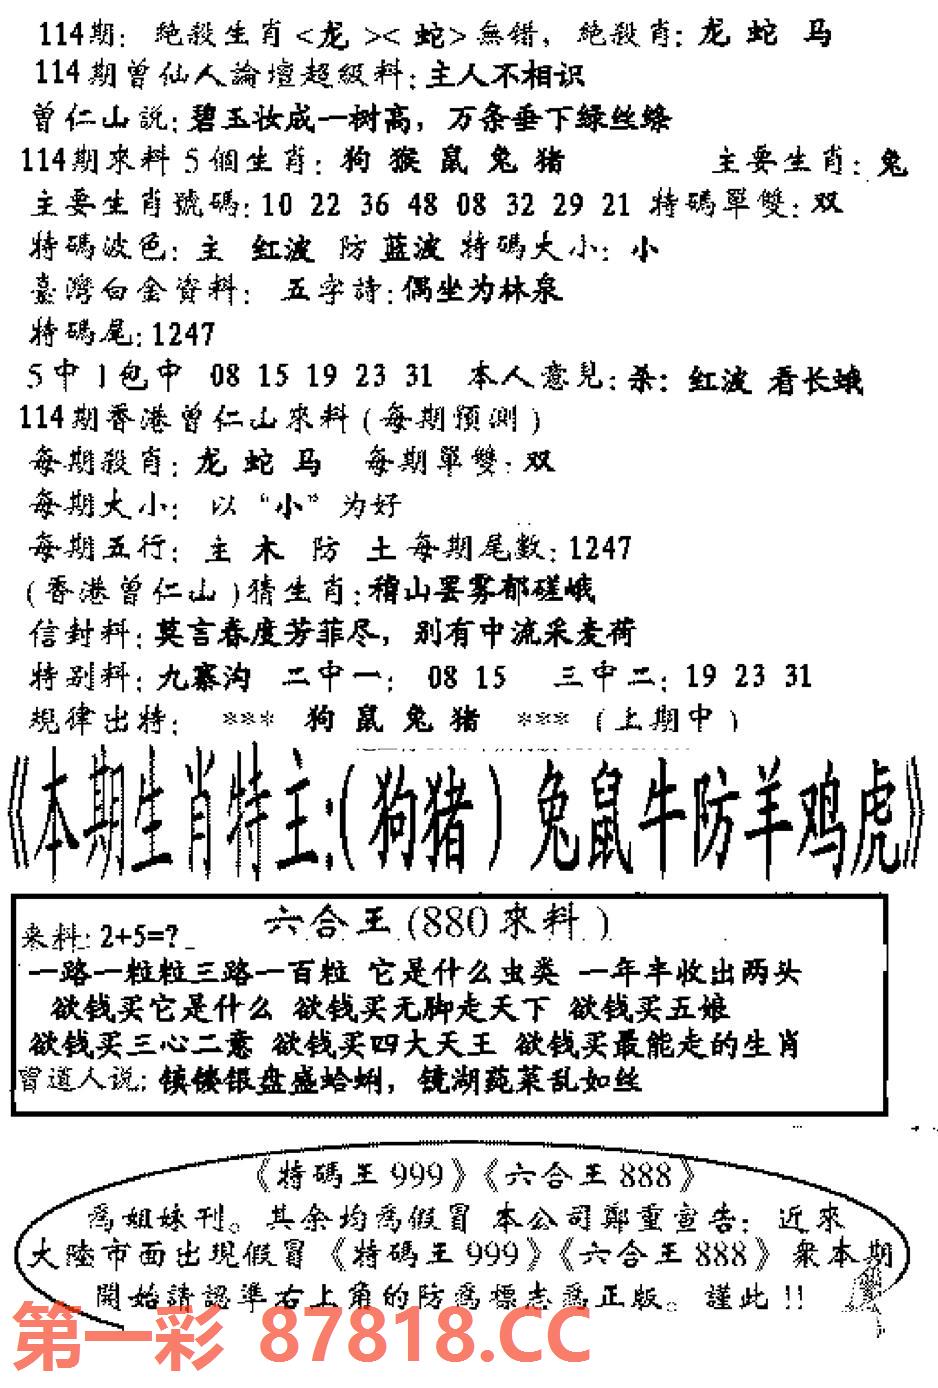 114期: 絶殺生肖<龙><蛇>無错, 絶殺肖: 龙 蛇 马
114期曾仙人論壇超級料: 主人不相识
曾仁山説: 碧玉妆成一树高, 万条垂下绿丝绦
114期來料 5個生肖: 狗 猴 鼠 兔 猪 主要生肖: 兔
主要生肖號碼: 10 22 36 48 08 32 29 21 特碼單雙: 双
特碼波色: 主 红波 防 蓝波 特碼大小: 小
臺灣白金資料: 五字詩: 偶坐为林泉
特碼尾: 1247
5中1包中 08 15 19 23 31 本人意見: 杀: 红波 看长蛾
114期香港曾仁山來料(每期預測)
每期殺肖: 龙 蛇 马 每期單雙: 双
每期大小: 以“小”为好
每期五行: 主 木 防 土 每期尾數: 1247
(香港曾仁山)猜生肖: 稽山罢雾郁磋峨
信封料: 莫言春度芳菲尽, 别有中流采麦荷
特别料: 九寨沟 二中一: 08 15 三中二: 19 23 31
規律出特: *** 狗 鼠 兔 猪 *** (上期中)
《本期生肖特主:(狗猪)兔鼠牛防羊鸡虎》
六合王(880來料)
来料: 2+5=?
一路一粒粒三路一百粒 它是什么虫类 一年丰收出两头
欲钱买它是什么 欲钱买无脚走天下 欲钱买五娘
欲钱买三心二意 欲钱买四大天王 欲钱买最能走的生肖
曾道人说: 镇楼银盘盛蛤蜊, 镜湖莼菜乱如丝
《特碼王999》《六合王888》
為姐妹刊。其余均為假冒 本公司鄭重宣告: 近來
大陸市面出現假冒《特碼王999》《六合王888》衆本期
開始請認準右上角的防為標志為正版。謹此!!
第一彩 87818.CC